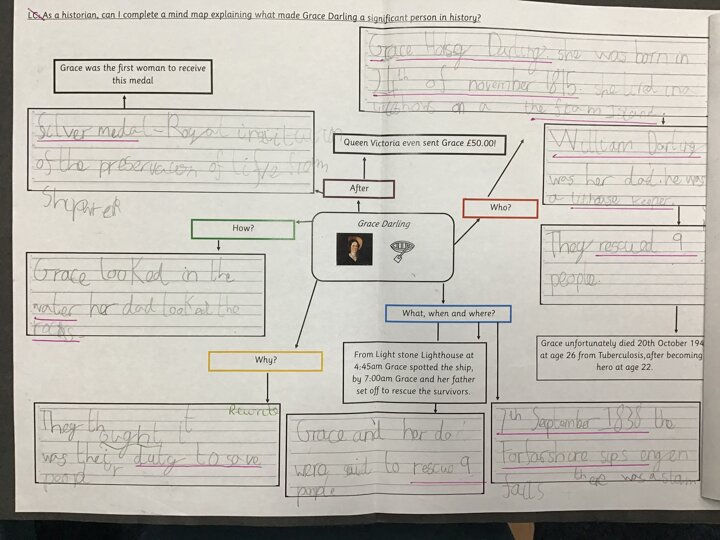 LC: As a historian, can I complete a mind map explaining what made Grace Darling a significant person in history?
Grace was the first woman to receive
this medal
Silver medal - Royal
of the preservation of life from
Shipwrek
Grace Darling she was born in
24th of november 1815. she lived in a
on a the farn Island.
Queen Victoria even sent Grace £50.00!
After
Who?
William Darling
was her dad. he was
a lithouse keeper.
They rescued 9
people.
Grace unfortunately died 20th October 194
at age 26 from Tuberculosis,after becoming
hero at age 22.
How?
Grace looked in the
water her dad looked the
rocks.
Grace Darling
What, when and where?
From Light stone Lighthouse at
4:45am Grace spotted the ship,
by 7:00am Grace and her father
set off to rescue the survivors.
Why?
Rewrite
They thought it
was their duty to save
peopl
Grace and her dad
were said to rescue 9
people
7th September 1838 the
forfarshire sips engen
fails there was a storm